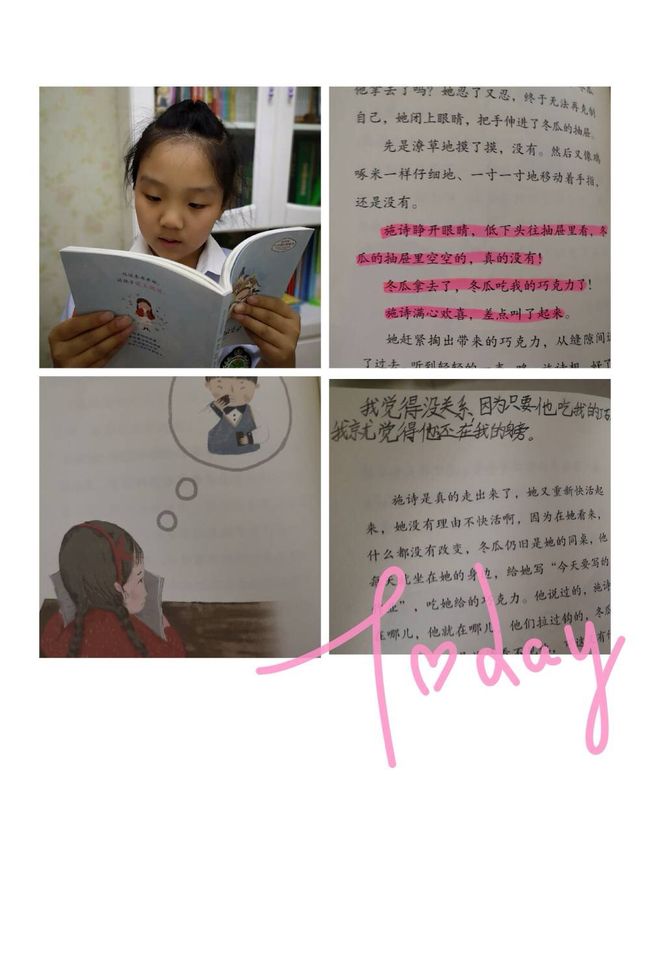 他拿去了吗？她忍了又忍，终于无法再克制
自己，她闭上眼睛，把手伸进了冬瓜的抽屉。
先是潦草地摸了摸，没有。然后又像鸡
啄米一样仔细地、一寸一寸地移动着手指，
还是没有。
施诗睁开眼睛、低下头往抽屉里看，冬
瓜的抽屉里空空的，真的没有！
冬瓜拿去了，冬瓜吃我的巧克力了！
施诗满心欢喜，差点叫了起来。
她赶紧掏出带来的巧克力，从缝隙间
了过去，听到轻轻的一声
我觉得没关系，因为只要他吃我的巧
我就觉得他还在我的身旁。
施诗是真的走出来了，她又重新快活起
来，她没有理由不快活啊，因为在她看来，
什么都没有改变，冬瓜仍旧是她的同桌，他
每天就坐在她的身边，给她写“今天要写的
业”，吃她给的巧克力。他说过的，施诗
在哪儿，他就在哪儿，他们拉过钩的，冬瓜
Today